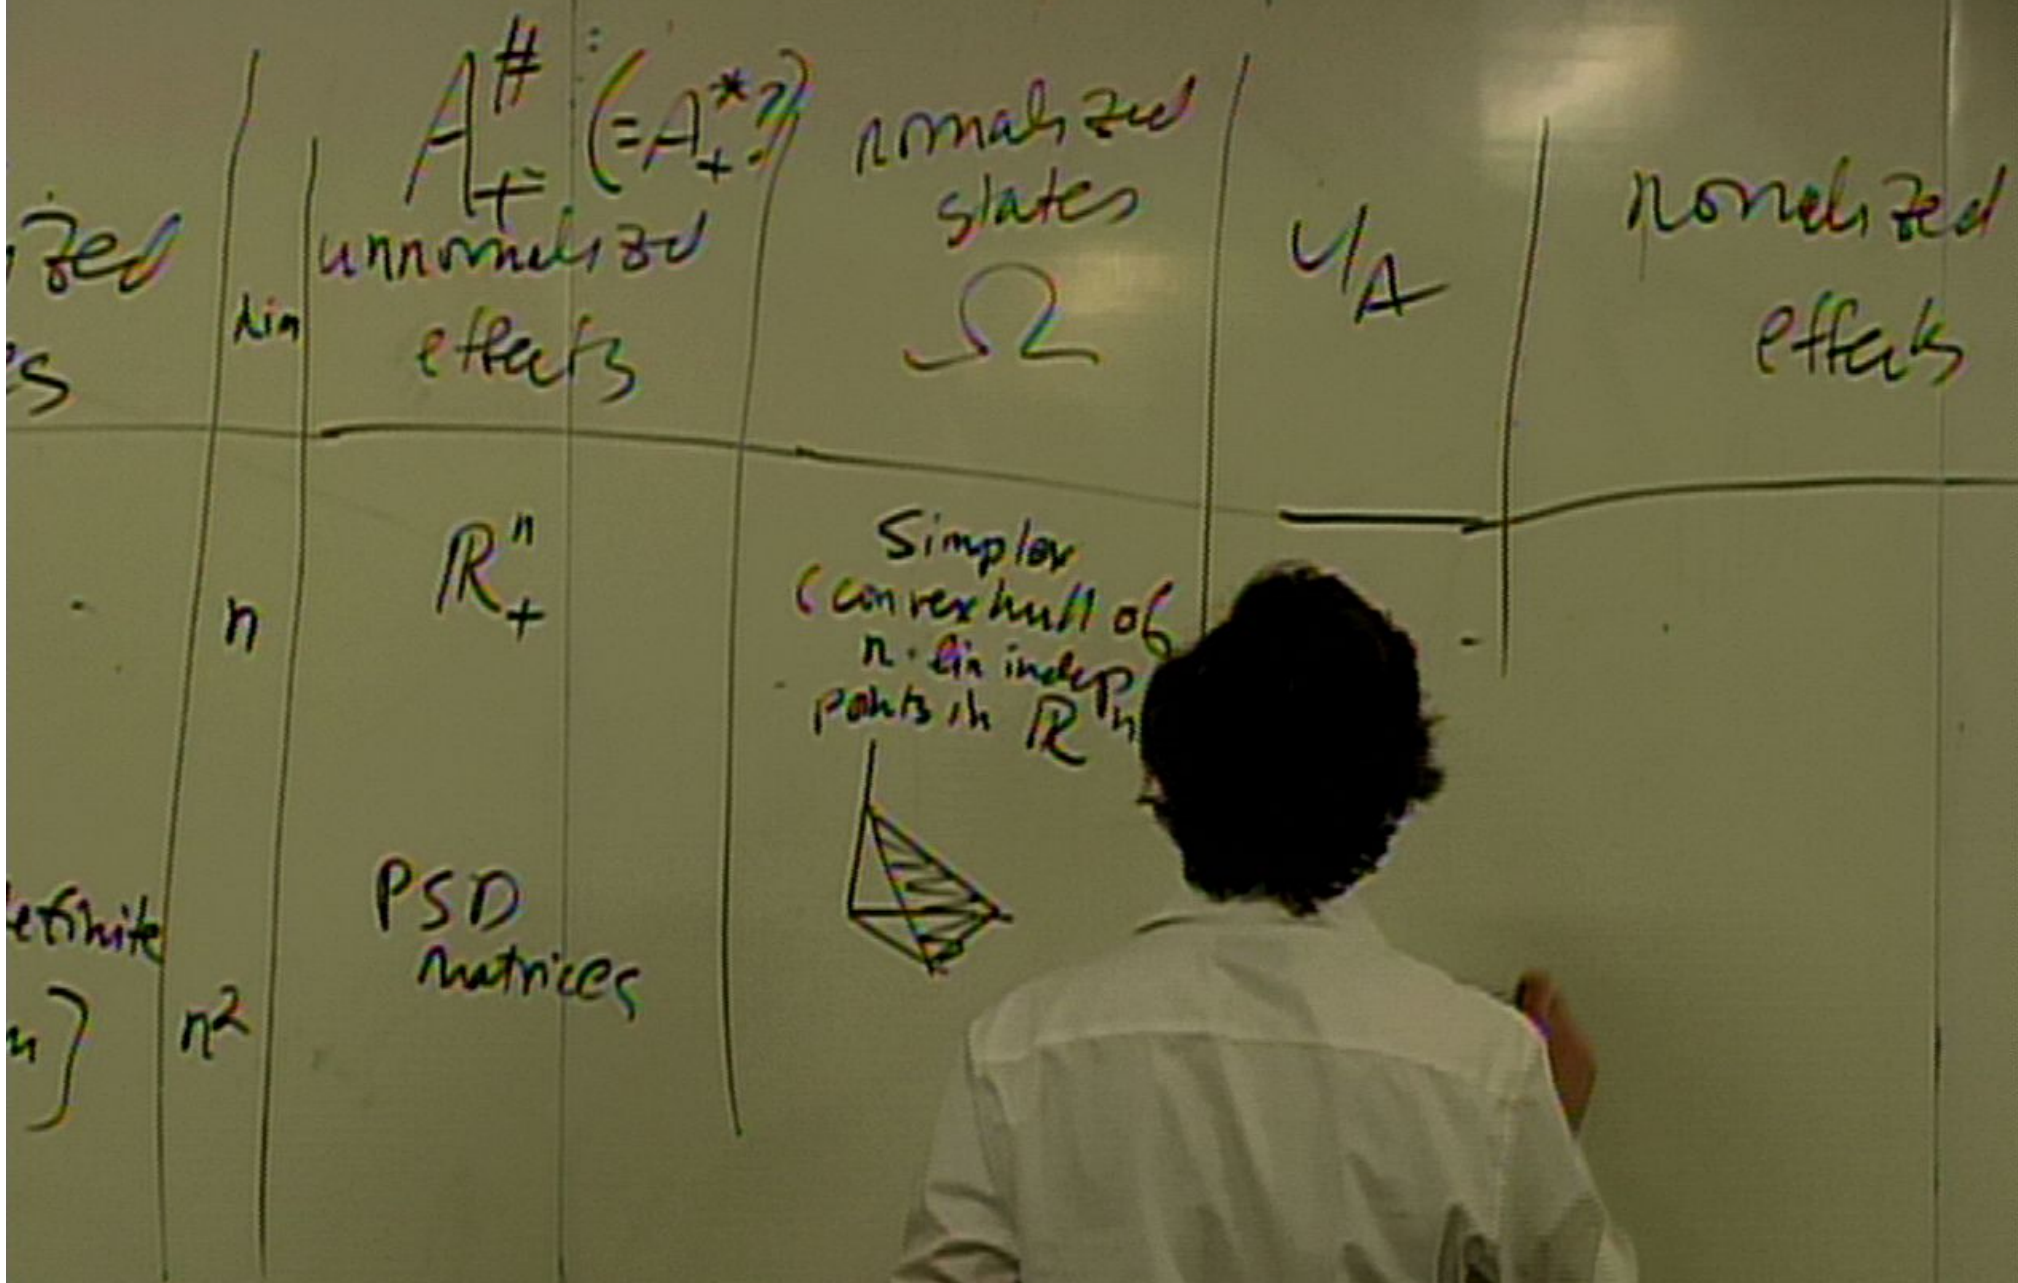 A₊^# (=A₊^*?)
unnormalized
effects
normalized
states
Ω
u_A
normalized
effects
ized
es
dim
n
ℝ₊ⁿ
Simplex
(convex hull of
n lin indep
points in ℝⁿ
efinite
n²
PSD
matrices